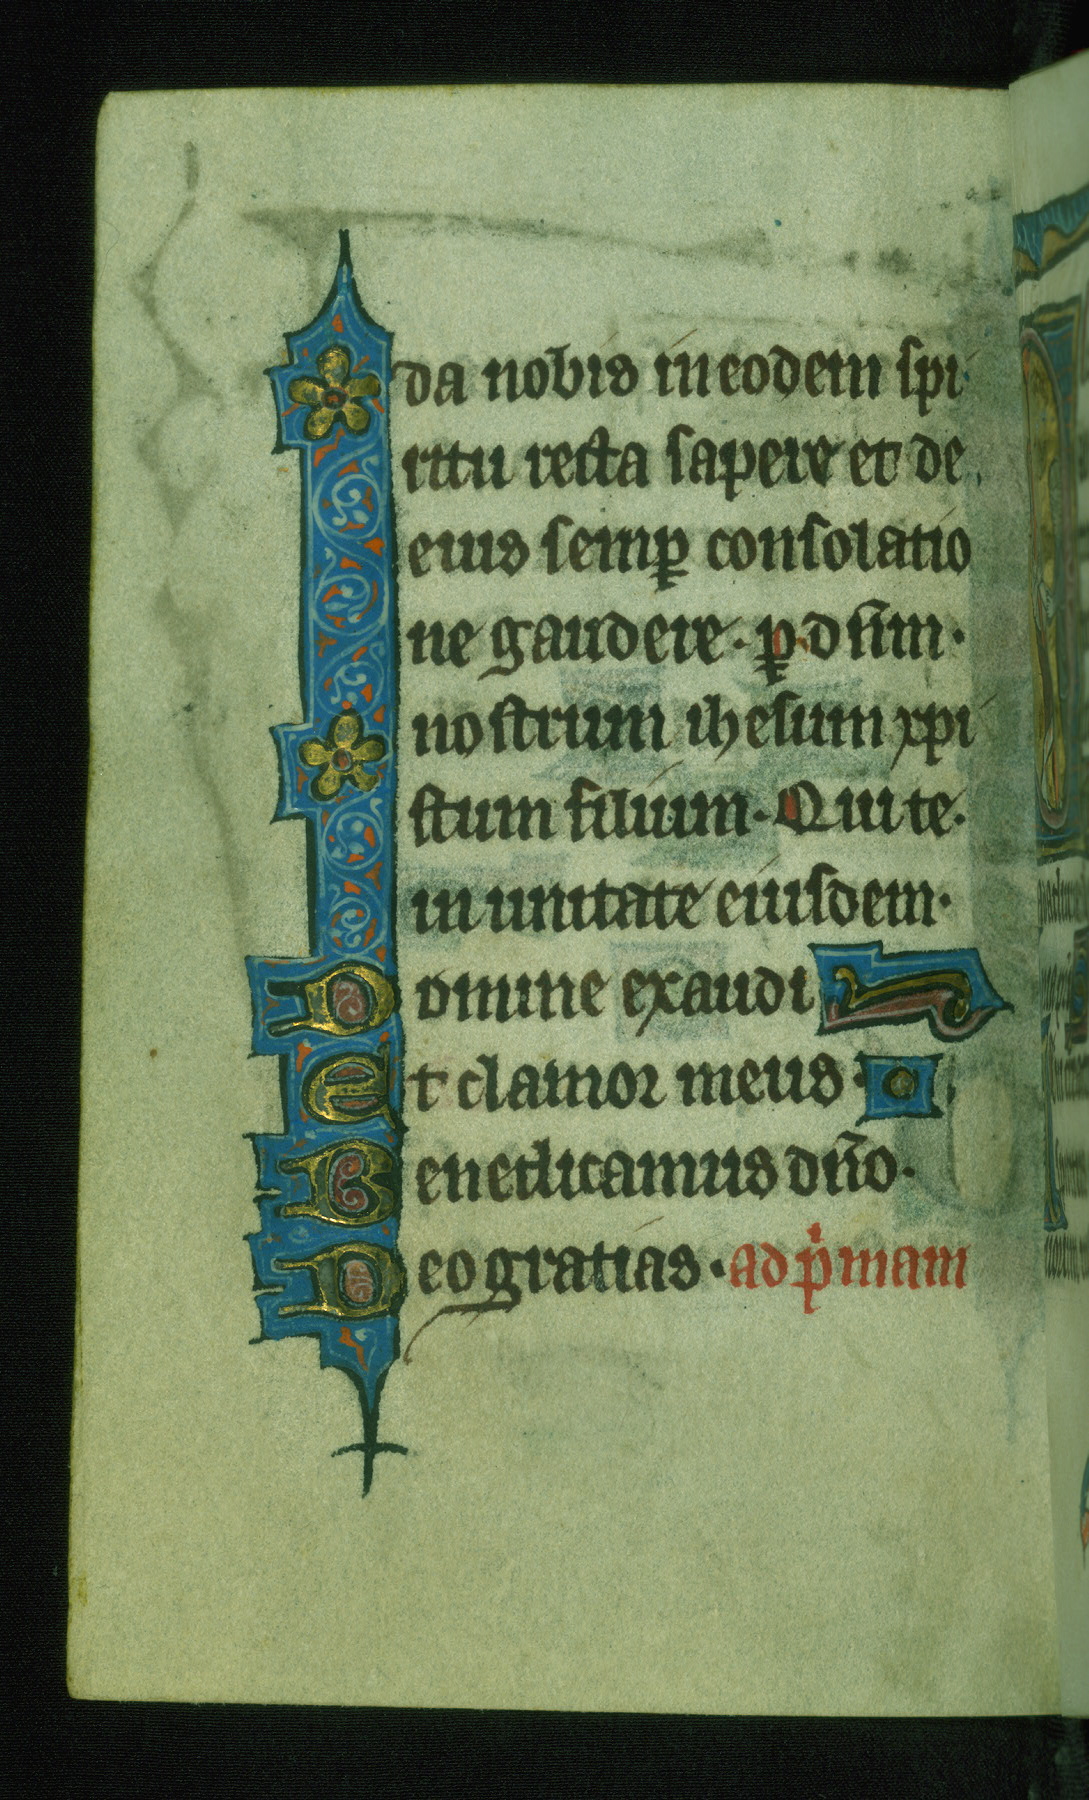 da nobis in eodem spi
ritu recta sapere et de
eius semꝑ consolatio
ne gaudere · ꝑ dn̄m ·
nostrum ihesum xpi
stum filium · Qui te ·
in unitate eiusdem ·
Domine exaudi
Et clamor meus ·
Benedicamus dn̄o ·
Deo gratias · ad pͥmam